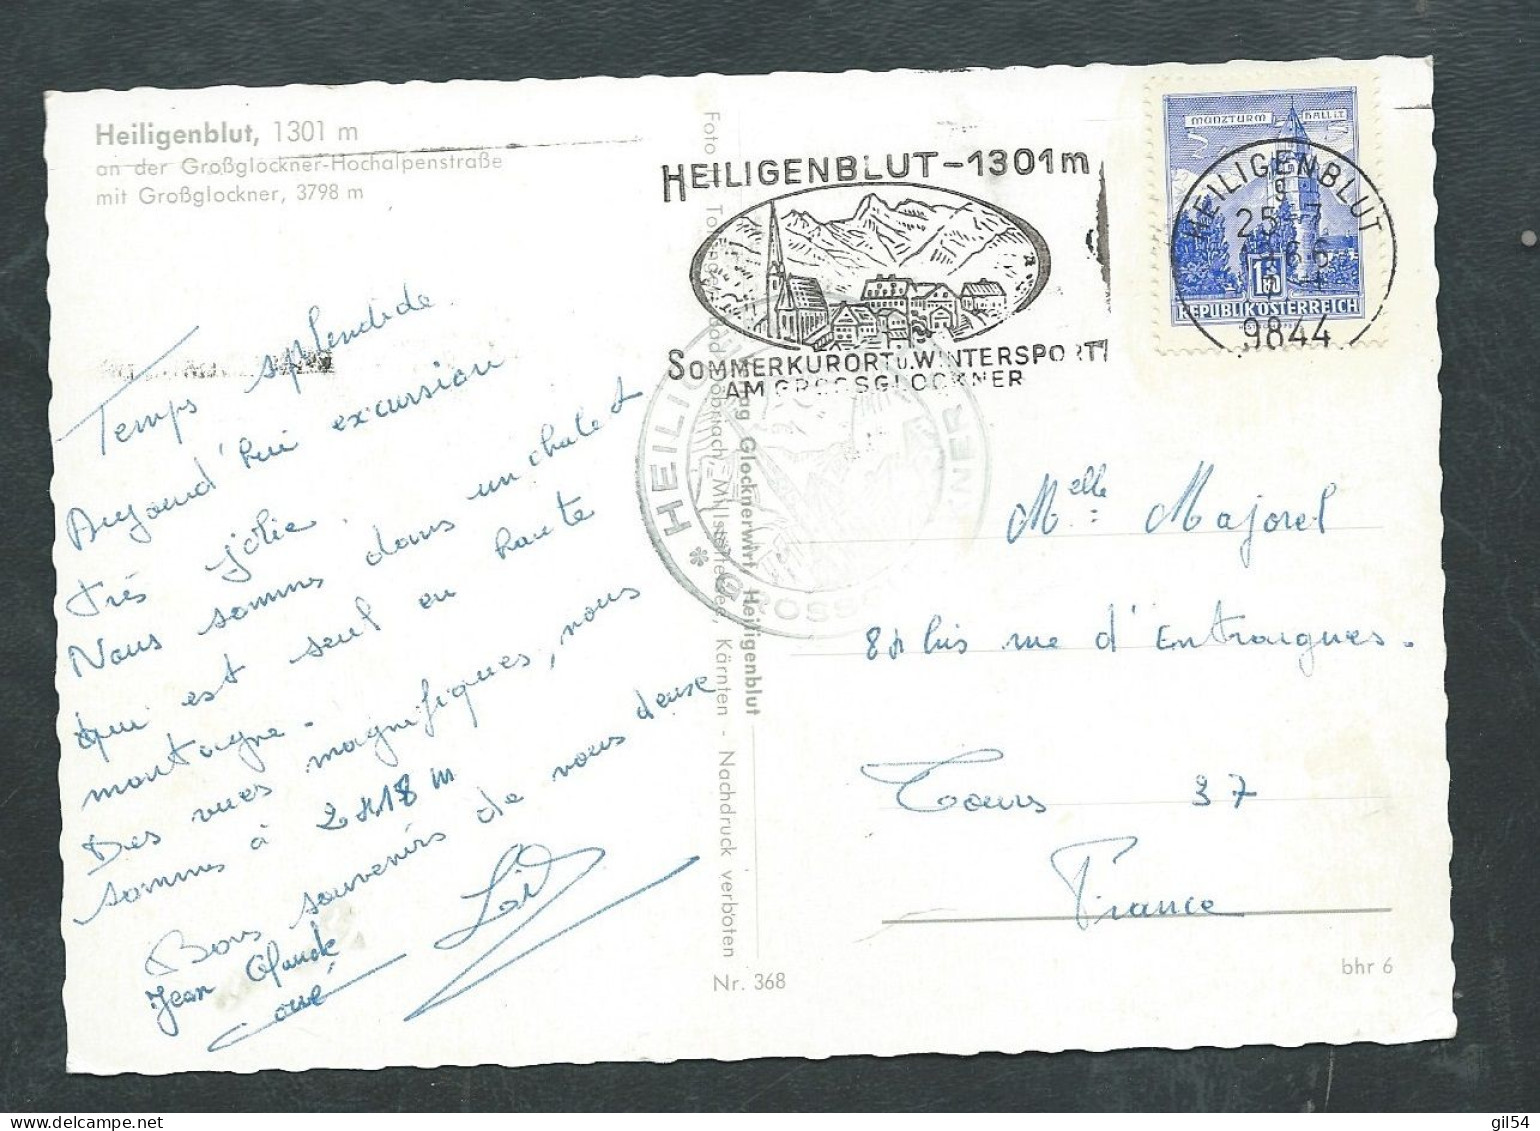 Heiligenblut, 1301 m
an der Großglockner-Hochalpenstraße
mit Großglockner, 3798 m
Temps splendide
Aujourd'hui excursion
très jolie.
Nous sommes dans un chalet
qui est seul en haute
montagne.
Des vues magnifiques, nous
sommes à 2418 m
Bons souvenirs de nous deux
Jean Claude
HEILIGENBLUT-1301m
SOMMERKURORT U. WINTERSPORT
AM GROSSGLOCKNER
MÜNZTURM HALL I.T.
REPUBLIK ÖSTERREICH
HEILIGENBLUT
25-7
9844
* HEILIG
Glocknerwirt, Heiligenblut
Döbriach-Millstättersee, Kärnten - Nachdruck verboten
Nr. 368
Melle Majorel
84 bis rue d'Entraigues.
Tours 37
France
bhr 6
gil54